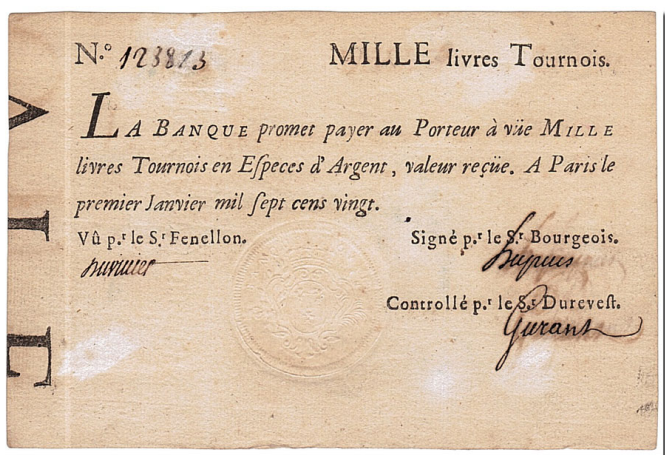 N.º 123813 MILLE livres Tournois.
LA BANQUE promet payer au Porteur à vüe MILLE
livres Tournois en Eſpeces d'Argent, valeur reçüe. A Paris le
premier Janvier mil ſept cens vingt.
Vû p.r le S.r Fenellon. Signé p.r le S.r Bourgeois.
Controllé p.r le S.r Dureveſt.